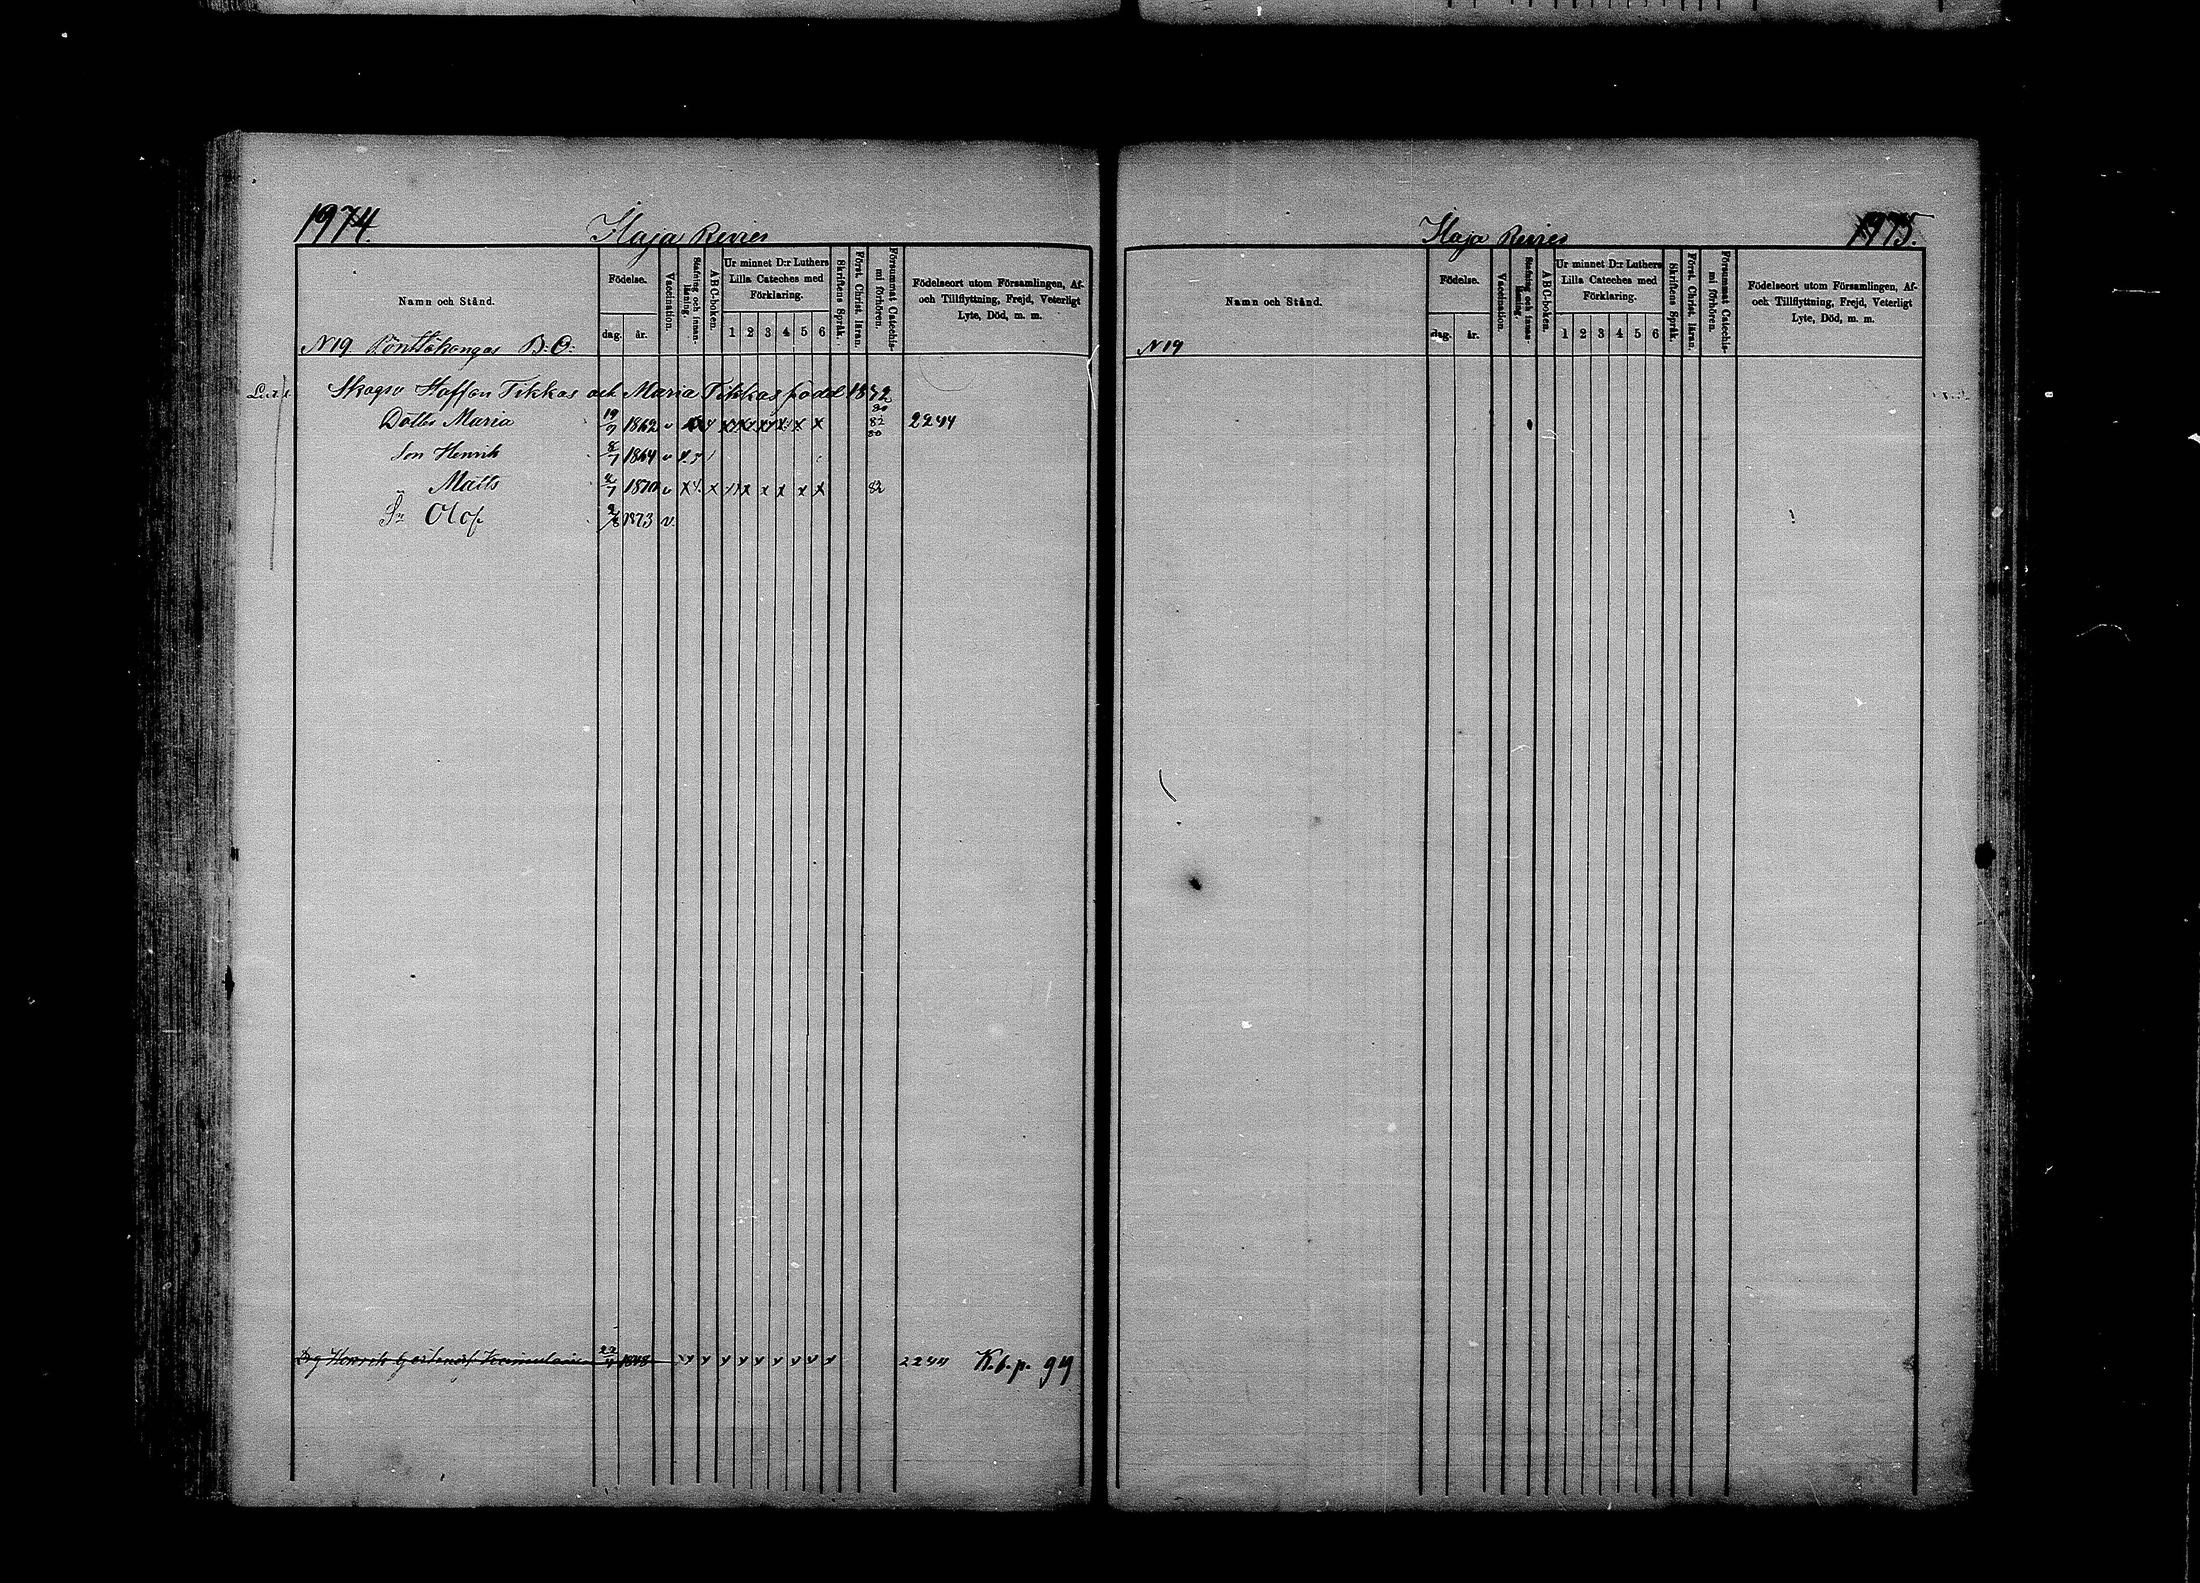 1974.
Haja Revier
Namn och Stånd.
Födelse.
dag. år.
Vaccination.
Stafning och innan-läsning.
ABC-boken.
Ur minnet D:r Luthers
Lilla Cateches med
Förklaring.
1 2 3 4 5 6
Skriftens Språk.
Först. Christ. läran.
Försummat Catechis-
mi förhören.
Födelseort utom Församlingen, Af-
och Tillflyttning, Frejd, Veterligt
Lyte, Död, m. m.
N 19 Pönttökangas B. O.
Skogsv Staffan Tikkas och Maria Tikkas född 1832
Dotter Maria 19/9 1862 v x x x x x x 80 82 80 2244
Son Henrik 8/7 1864 v
" Matts 2/7 1870 v x x x x x x x 82
Sn Olof 2/8 1873 v.
Dg Henrik 22/4 1848 v v v v v v v v v 2244 K.b.p. 94
Haja Revier
1975.
Namn och Stånd.
Födelse.
dag. år.
Vaccination.
Stafning och innan-läsning.
ABC-boken.
Ur minnet D:r Luthers
Lilla Cateches med
Förklaring.
1 2 3 4 5 6
Skriftens Språk.
Först. Christ. läran.
Försummat Catechis-
mi förhören.
Födelseort utom Församlingen, Af-
och Tillflyttning, Frejd, Veterligt
Lyte, Död, m. m.
N 19